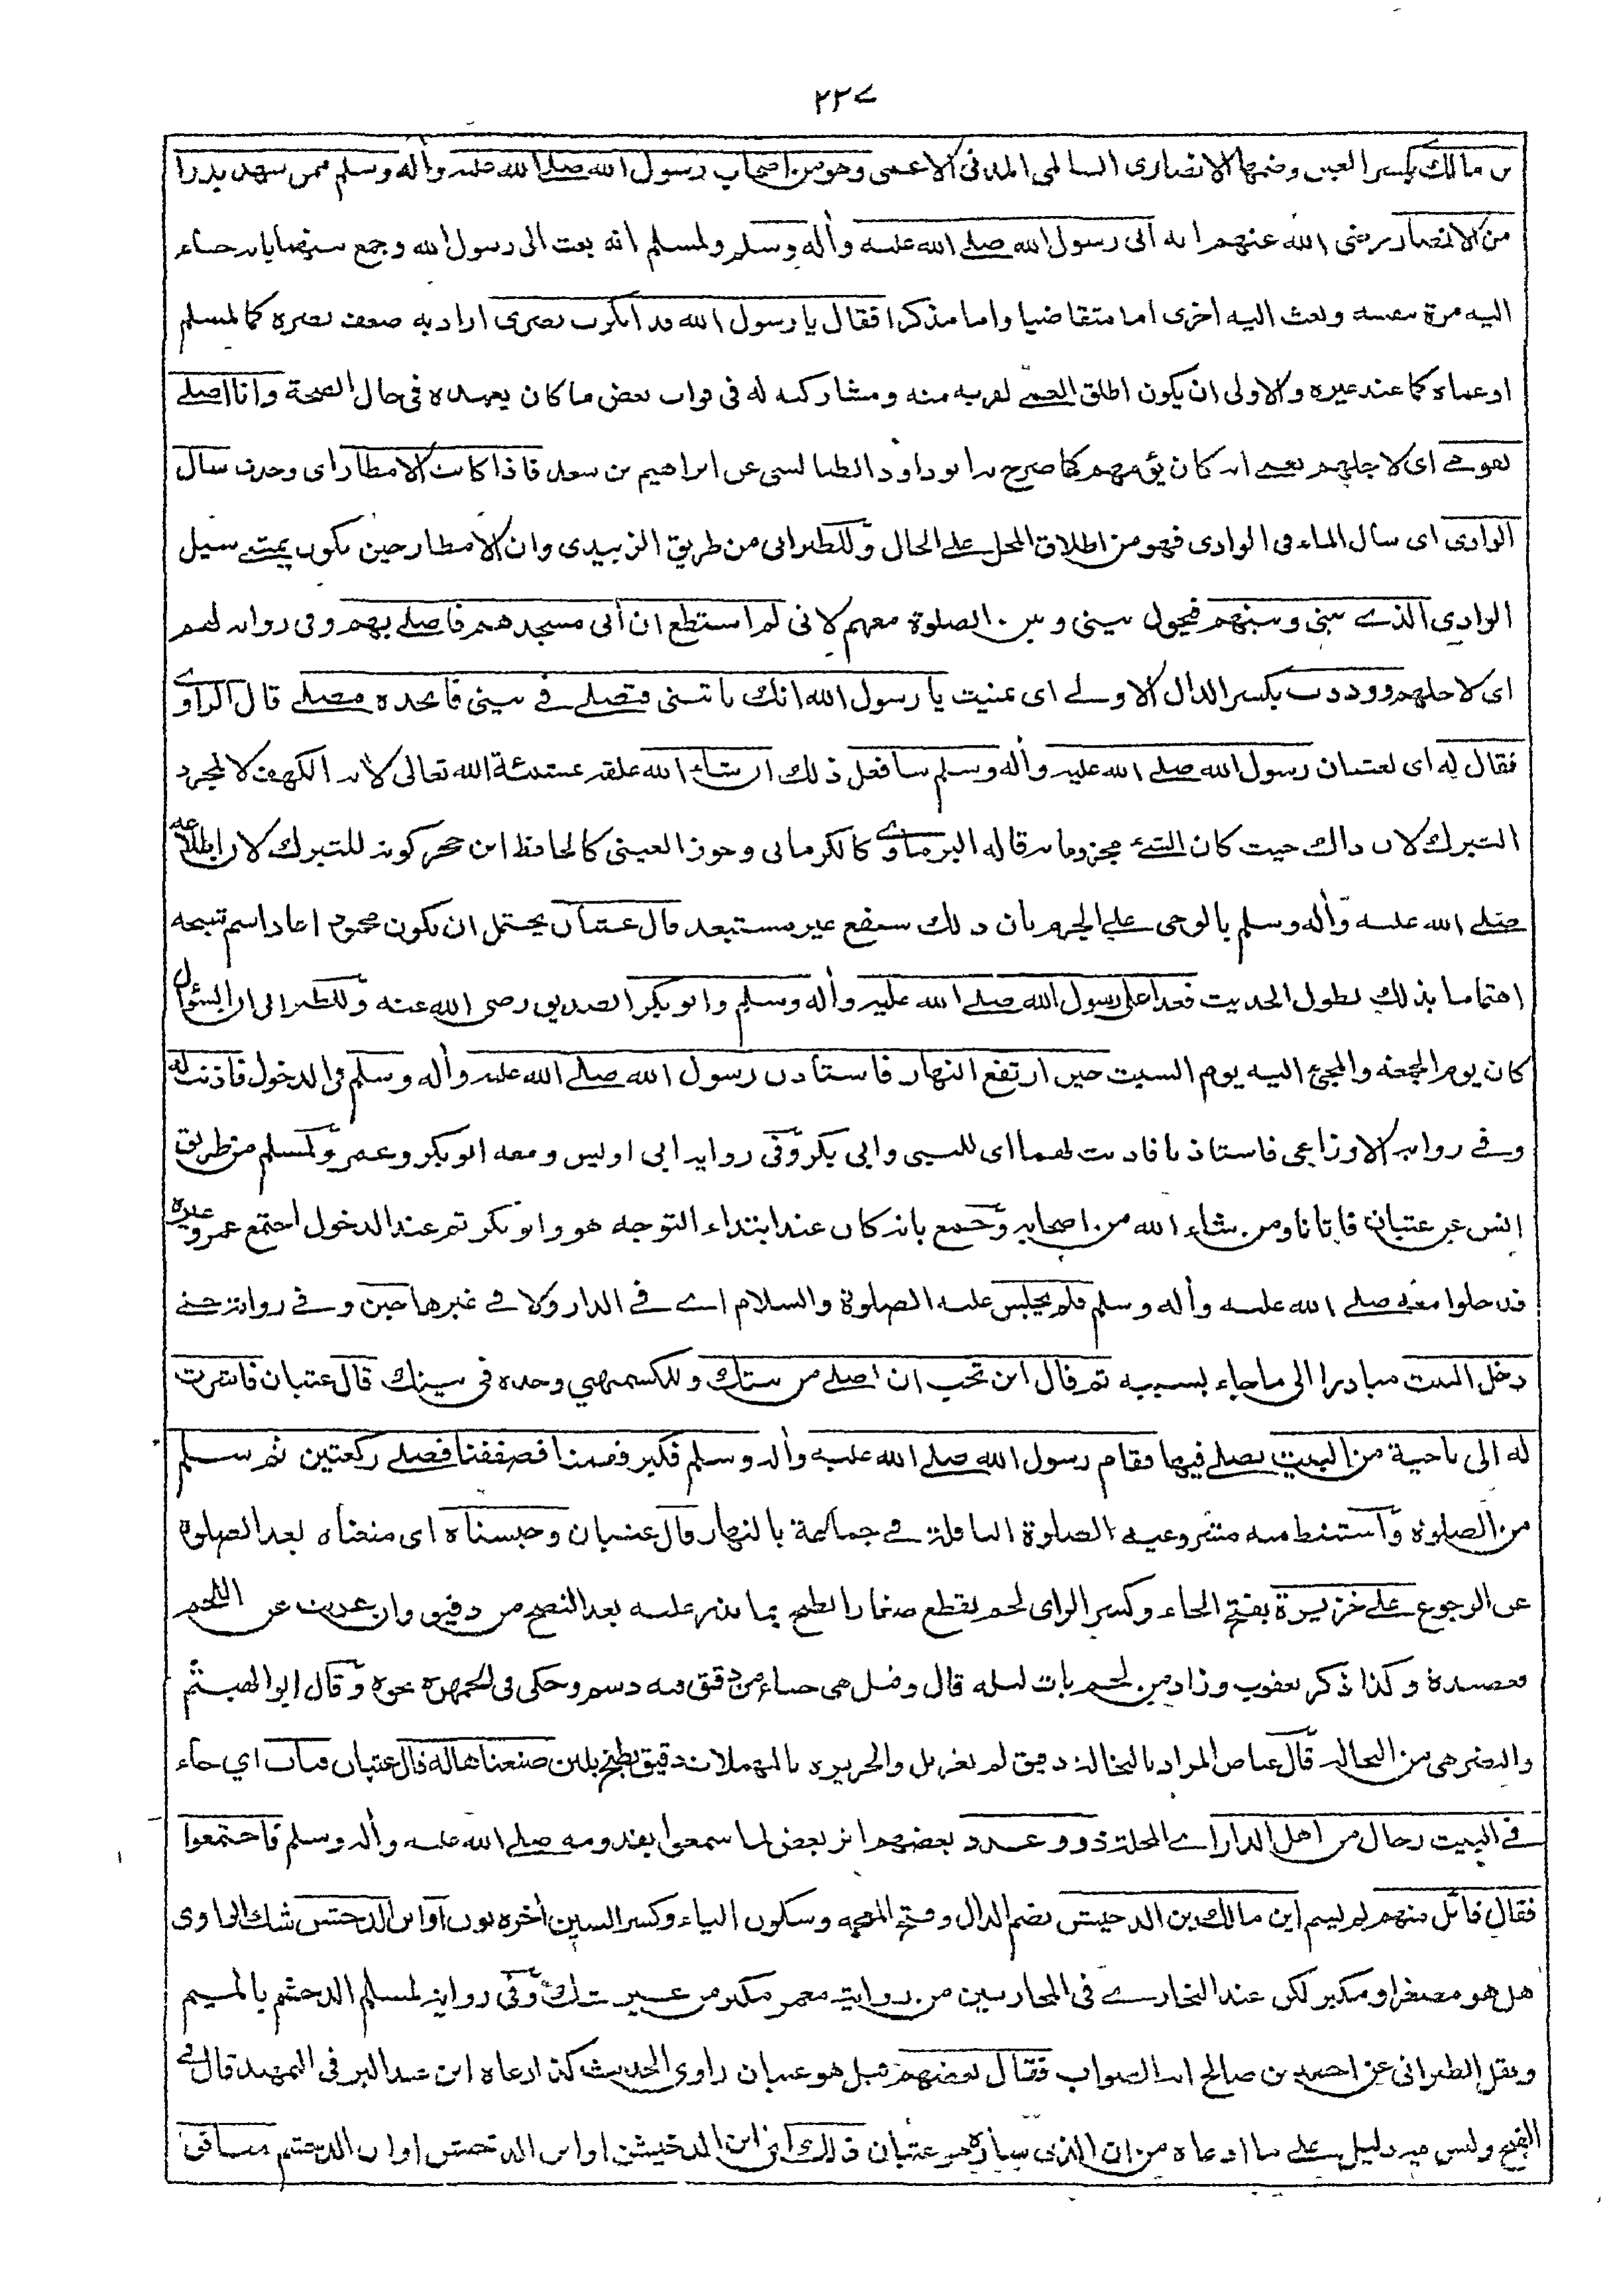 ٢٢٧
بن مالك بكسر العين وضمها الانصارى السالمى المدنى الاعمى وهو من اصحاب رسول الله صلى الله عليه وأله وسلم ممن شهد بدرا
من الانصار رضى الله عنهم انه اتى رسول الله صلى الله عليه وأله وسلم ولمسلم انه بعث الى رسول الله وجمع بينهما بانه جاء
اليه مرة بنفسه وبعث اليه اخرى اما متقاضيا واما مذكرا فقال يا رسول الله قد انكرت بصرى اراد به ضعف بصره كما لمسلم
او عماه كما عند غيره والاولى ان يكون اطلق العمى لقربه منه ومشاركته له فى فوات بعض ما كان يعهده فى حال الصحة وانا اصلى
لقومى اى لاجلهم يعنى انه كان يؤمهم كما صرح به ابو داود الطيالسى عن ابراهيم بن سعد فاذا كانت الامطار اى وجدت سال
الوادى اى سال الماء فى الوادى فهو من اطلاق المحل على الحال وللطبرانى من طريق الزبيدى وان الامطار حين تكون يمنعنى سيل
الوادى الذى بينى وبينهم فيحول بينى وبين الصلوة معهم لانى لم استطع ان أتى مسجدهم فاصلى بهم وفى رواية لهم
اى لاجلهم ووددت بكسر الدال الاولى اى تمنيت يا رسول الله انك تاتينى فتصلى فى بيتى فاتخذه مصلى قال الراوى
فقال له اى لعتبان رسول الله صلى الله عليه وأله وسلم سافعل ذلك ان شاء الله علقه بمشيئة الله تعالى لأية الكهف لا لمجرد
التبرك لان ذاك حيث كان الشئ مجزوما به قاله البرماوى كالكرمانى وجوز العينى كالحافظ ابن حجر كونه للتبرك لان اطلاعه
صلى الله عليه وأله وسلم بالوحى على الجزم بان ذلك سيقع غير مستبعد قال عتبان يحتمل ان يكون محمود اعاد اسم شيخه
اهتماما بذلك لطول الحديث فغدا على رسول الله صلى الله عليه وأله وسلم وابو بكر الصديق رضى الله عنه وللطبرانى ان السؤال
كان يوم الجمعة والمجئ اليه يوم السبت حين ارتفع النهار فاستاذن رسول الله صلى الله عليه وأله وسلم فى الدخول فاذنت له
وفى رواية الاوزاعى فاستاذنا فاذنت لهما اى للنبى وابى بكر وفى رواية ابى اويس ومعه ابو بكر وعمر ولمسلم من طريق
انس عن عتبان فاتانا ومن شاء الله من اصحابه وجمع بانه كان عند ابتداء التوجه هو وابو بكر ثم عند الدخول اجتمع عمر وغيره
فدخلوا معه صلى الله عليه وأله وسلم فلم يجلس عليه الصلوة والسلام اى فى الدار ولا فى غيرها حين وفى رواية حتى
دخل البيت مبادرا الى ما جاء بسببه ثم قال اين تحب ان اصلى من بيتك وللكشميهنى وحده فى بيتك قال عتبان فاشرت
له الى ناحية من البيت يصلى فيها فقام رسول الله صلى الله عليه وأله وسلم فكبر فقمنا فصففنا فصلى ركعتين ثم سلم
من الصلوة واستنبط منه مشروعية الصلوة النافلة فى جماعة بالنهار قال عتبان وحبسناه اى منعناه بعد الصلوة
عن الرجوع على خزيرة بفتح الخاء وكسر الزاى لحم يقطع صغارا يطبخ بما يذر عليه بعد النضج من دقيق وان عريت عن اللحم
فعصيدة وكذا ذكر يعقوب وزاد من لحم بات ليلة قال وقيل هى حساء من دقيق فيه دسم وحكى فى الجمهرة نحوه وقال ابو الهيثم
والنضر هى من النخالة قال عياض المراد بالنخالة دقيق لم يغربل والحريره بالمهملات دقيق يطبخ بلبن صنعناها له قال عتبان فثاب اى جاء
فى البيت رجال من اهل الدار اى المحلة ذوو عدد بعضهم اثر بعض لما سمعوا بقدومه صلى الله عليه وأله وسلم فاجتمعوا
فقال قائل منهم لم يسم اين مالك بن الدخيشن بضم الدال وفتح المعجمة وسكون الياء وكسر الشين أخره نون أو ابن الدخشن شك الراوى
هل هو مصغر او مكبر لكن عند البخارى فى المحاربين من رواية معمر مكبر من غير شك وفى رواية لمسلم الدخشم بالميم
ونقل الطبرانى عن احمد بن صالح انه الصواب فقال بعضهم قيل هو عتبان راوى الحديث كذا ادعاه ابن عبد البر فى التمهيد قال فى
الفتح وليس فيه دليل على ما ادعاه من ان الذى ساره هو عتبان ذلك اى ابن الدخيشن او ابن الدخشن او ابن الدخشم منافق